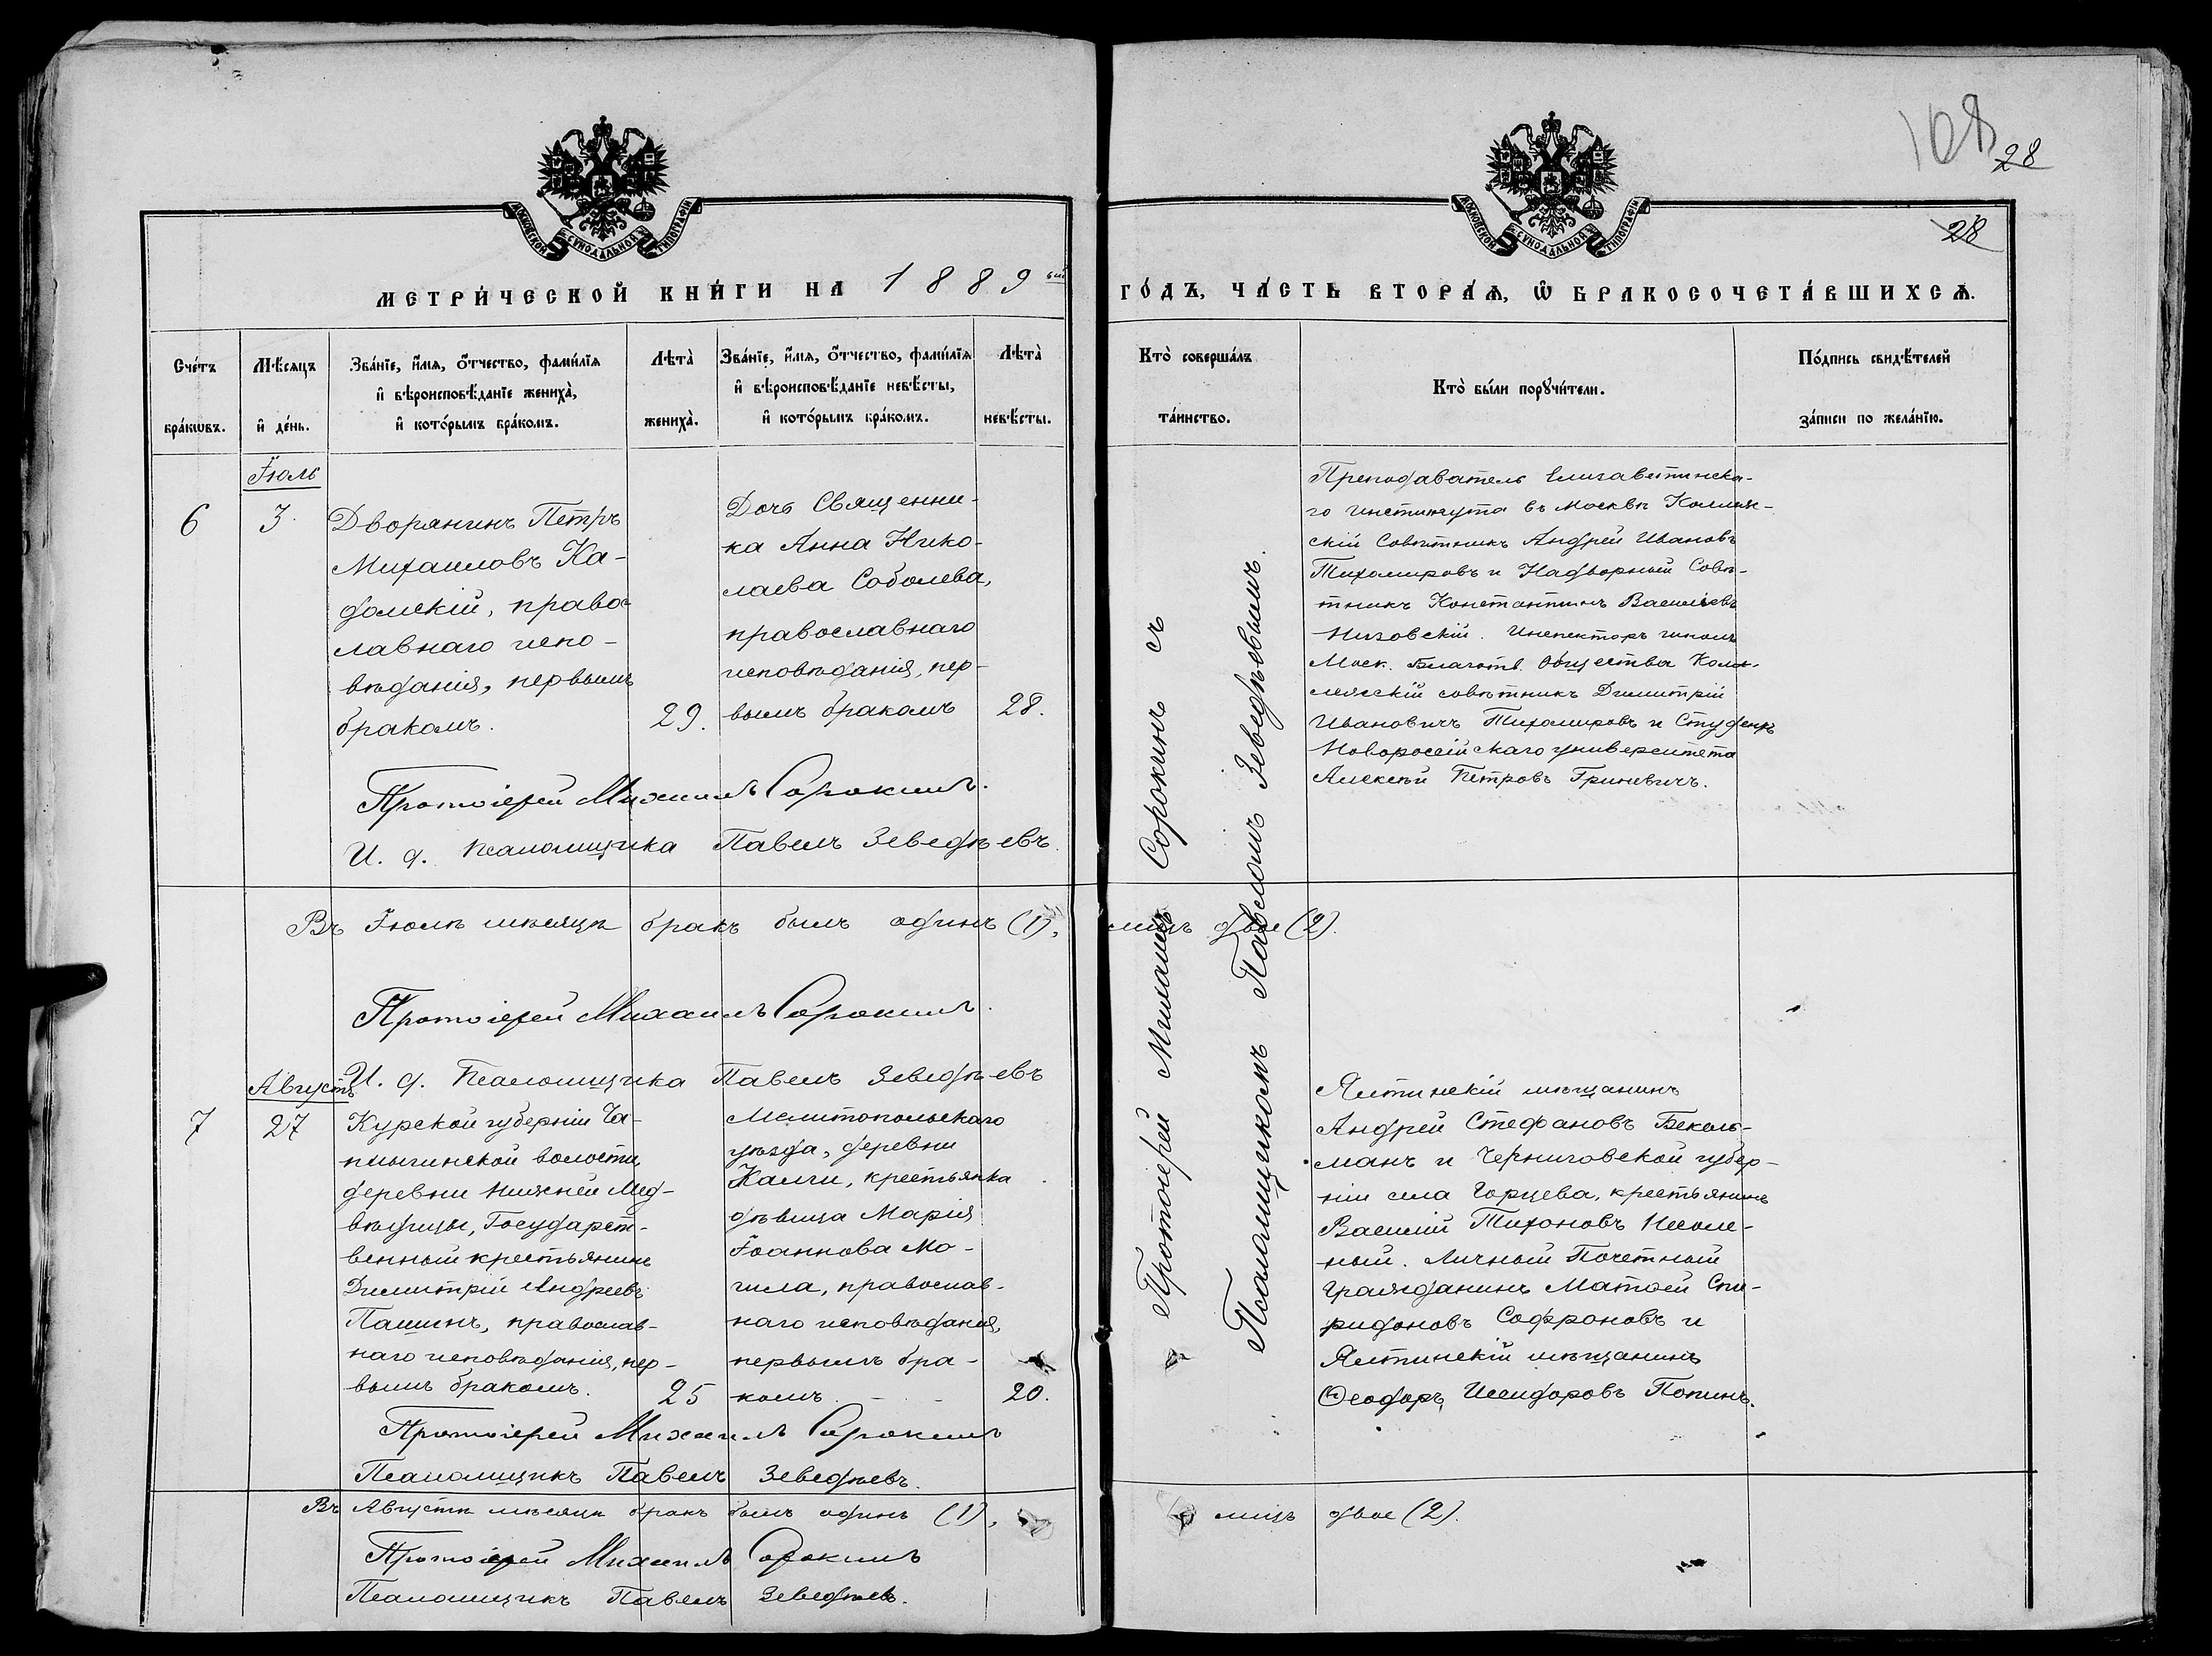 108
28
28
МОСКОВСКОЙ СУНОДАЛЬНОЙ ТИПОГРАФІИ
МОСКОВСКОЙ СУНОДАЛЬНОЙ ТИПОГРАФІИ
МЕТРИЧЕСКОЙ КНИГИ НА 1889 ый
ГОДЪ, ЧАСТЬ ВТОРАЯ, Ѡ БРАКОСОЧЕТАВШИХСЯ.
Счетъ браковъ.
Мѣсяцъ и день.
Званіе, имя, отчество, фамилія
и вѣроисповѣданіе жениха,
и которымъ бракомъ.
Лѣта жениха.
Званіе, имя, отчество, фамилія
и вѣроисповѣданіе невѣсты,
и которымъ бракомъ.
Лѣта невѣсты.
Кто совершалъ
таинство.
Кто были поручители.
Подпись свидѣтелей
записи по желанію.
Іюль
6
3
Дворянинъ Петръ
Михаиловъ Ка-
домскій, право-
славнаго испо-
вѣданія, первымъ
бракомъ.
29.
Дочь Священни-
ка Анна Нико-
лаева Соболева,
православнаго
исповѣданія, пер-
вымъ бракомъ
28.
Протоіерей Михаилъ Сорокинъ съ
Псаломщикомъ Павломъ Зеведѣевымъ.
Преподаватель Елизаветинска-
го Института въ Москвѣ Коллеж-
скій Совѣтникъ Андрей Ивановъ
Тихомировъ и Надворный Совѣ-
тникъ Константинъ Васильевъ
Низовскій. Инспекторъ
Моск. Благотв. Общества Кол-
лежскій совѣтникъ Димитрій
Ивановичъ Тихомировъ и Студентъ
Новороссійскаго университета
Алексѣй Петровъ Гриневичъ.
Протоіерей Михаилъ Сорокинъ.
И. д. псаломщика Павелъ Зеведѣевъ.
Въ Іюлѣ мѣсяцѣ бракъ былъ одинъ (1), лицъ двое (2).
Протоіерей Михаилъ Сорокинъ.
И. д. Псаломщика Павелъ Зеведѣевъ
Августъ
7
27
Курской губерніи Ча-
плыгинской волости,
деревни Нижней Мед-
вѣдицы, Государст-
венный крестьянинъ
Димитрій Андреевъ
Пашинъ, православ-
наго исповѣданія, пер-
вымъ бракомъ.
25
Мелитопольскаго
уѣзда, деревни
Калги, крестьянка
дѣвица Марія
Іоаннова Мо-
гила, православ-
наго исповѣданія,
первымъ бра-
комъ.
20.
Ялтинскій мѣщанинъ
Андрей Стефановъ Бекель-
манъ и Черниговской губер-
ніи села Горцева, крестьянинъ
Василій Тихоновъ
Личный Почетный
Гражданинъ Матѳей Спи-
ридоновъ Софроновъ и
Ялтинскій мѣщанинъ
Ѳеодоръ Исидоровъ Попинъ.
Протоіерей Михаилъ Сорокинъ
Псаломщикъ Павелъ Зеведѣевъ.
Въ Августѣ мѣсяцѣ бракъ былъ одинъ (1), лицъ двое (2).
Протоіерей Михаилъ Сорокинъ
Псаломщикъ Павелъ Зеведѣевъ.